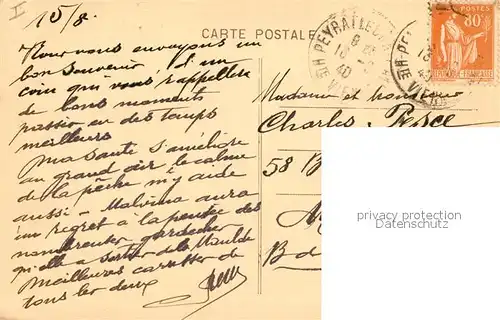 I
15/8.
CARTE POSTALE
POSTES
80c
PEYRAT LE
8
10
40
Nous vous envoyons un
bon souvenir d'un
coin qui vous rappellera
de bons moments
passés en des temps
meilleurs
Ma santé s'améliore
au grand air le calme
de la pêche m'y aide
aussi - Malvina aura
un regret à la pensée des
qu'elle a de la Maulde
Meilleures de
tous les deux
Madame et Monsieur
Charles Pesce
58 B
B d
privacy protection
Datenschutz